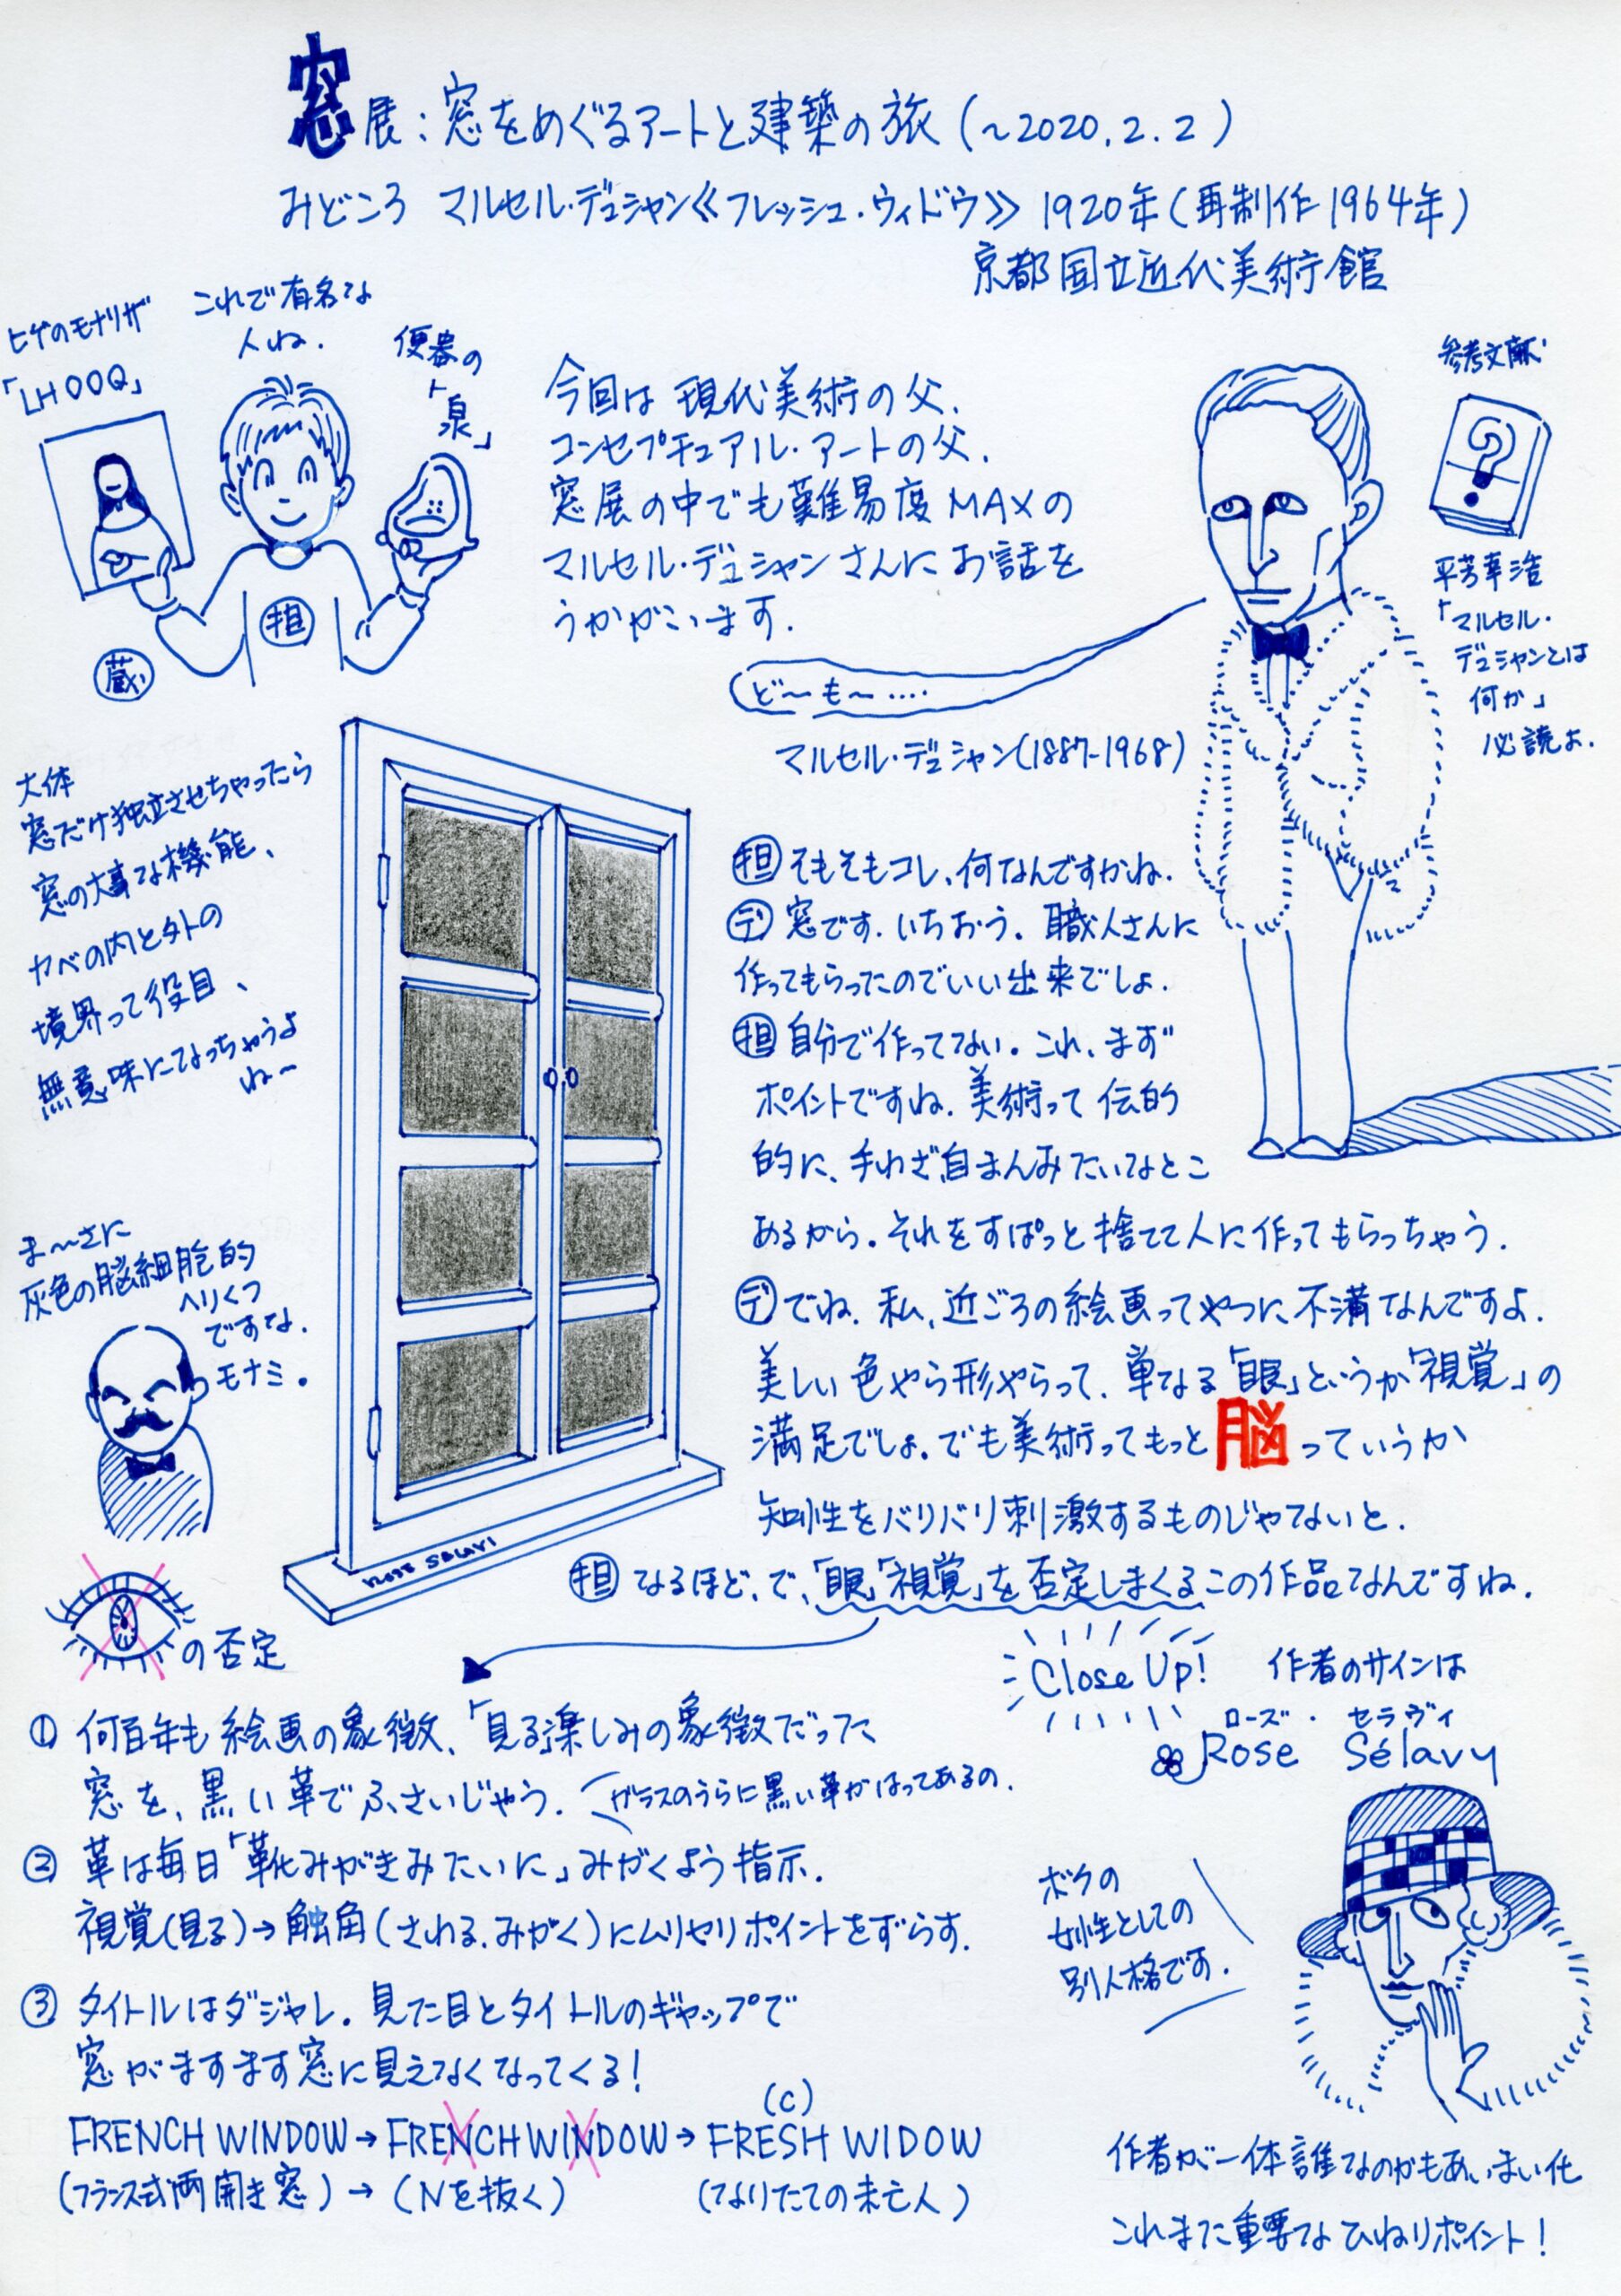 窓展：窓をめぐるアートと建築の旅（～2020.2.2）
みどころ マルセル・デュシャン《フレッシュ・ウィドウ》1920年（再制作1964年）
京都国立近代美術館
ヒゲのモナリザ
「LHOOQ」
これで有名な
人ね.
便器の
「泉」
担
蔵
今回は現代美術の父.
コンセプチュアル・アートの父.
窓展の中でも難易度MAXの
マルセル・デュシャンさんにお話を
うかがいます.
ど～も～‥‥
マルセル・デュシャン(1887-1968)
参考文献
?
平芳幸浩
「マルセル・
デュシャンとは
何か」
必読よ.
大体
窓だけ独立させちゃったら
窓の大事な機能、
カベの内と外の
境界って役目、
無意味になっちゃうよ
ね～
担 そもそもコレ、何なんですかね.
デ 窓です. いちおう. 職人さんに
作ってもらったのでいい出来でしょ.
担 自分で作ってない. これ、まず
ポイントですね. 美術って伝的
的に、手わざ自まんみたいなとこ
あるから. それをすぱっと捨てて人に作ってもらっちゃう.
デ でね. 私、近ごろの絵画ってやつに不満なんですよ.
美しい色やら形やらって、単なる「眼」というか「視覚」の
満足でしょ. でも美術ってもっと脳っていうか
知性をバリバリ刺激するものじゃないと.
担 なるほど、で、「眼」「視覚」を否定しまくるこの作品なんですね.
ま～さに
灰色の脳細胞的
ヘリくつ
ですな.
モナミ.
ROSE SELAVY
の否定
① 何百年も絵画の象徴、「見る」楽しみの象徴だった
窓を、黒い革でふさいじゃう.
ガラスのうらに黒い革がはってあるの.
② 革は毎日「靴みがきみたいに」みがくよう指示.
視覚(見る)→触角(さわる.みがく)にムリヤリポイントをずらす.
③ タイトルはダジャレ. 見た目とタイトルのギャップで
窓がますます窓に見えなくなってくる!
(C)
FRENCH WINDOW→FRENCH WINDOW→FRESH WIDOW
(フランス式両開き窓)→(Nを抜く) (なりたての未亡人)
Close Up!
作者のサインは
ローズ・セラヴィ
Rose Sélavy
ボクの
女性としての
別人格です.
作者が一体誰なのかもあいまい化
これまた重要なひねりポイント!